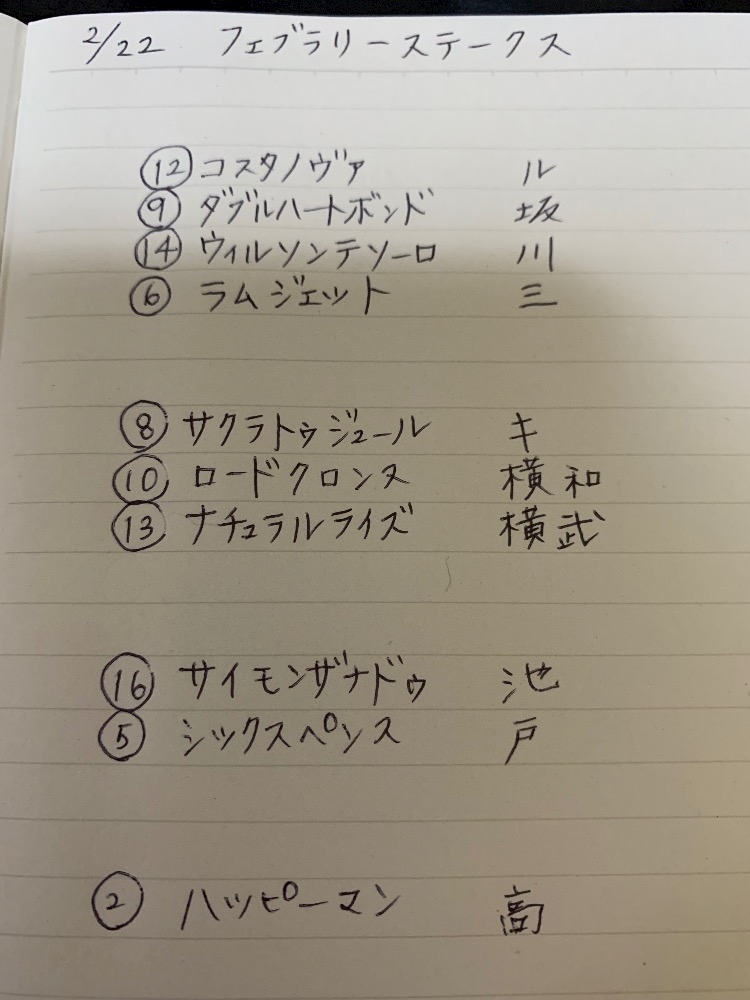 2/22 フェブラリーステークス
⑫ コスタノヴァ ル
⑨ ダブルハートボンド 坂
⑭ ウィルソンテソーロ 川
⑥ ラムジェット 三
⑧ サクラトゥジュール キ
⑩ ロードクロンヌ 横和
⑬ ナチュラルライズ 横武
⑯ サイモンザナドゥ 池
⑤ シックスペンス 戸
② ハッピーマン 高